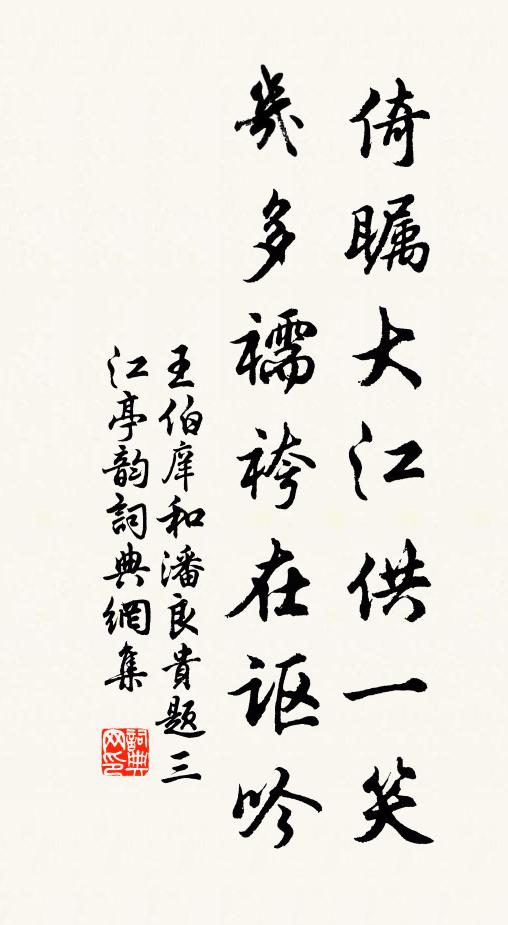 倚瞩大江供一笑
几多襦袴在讴吟
王伯庠和潘良貴题三
江亭韵詞典網集
詞典
网印